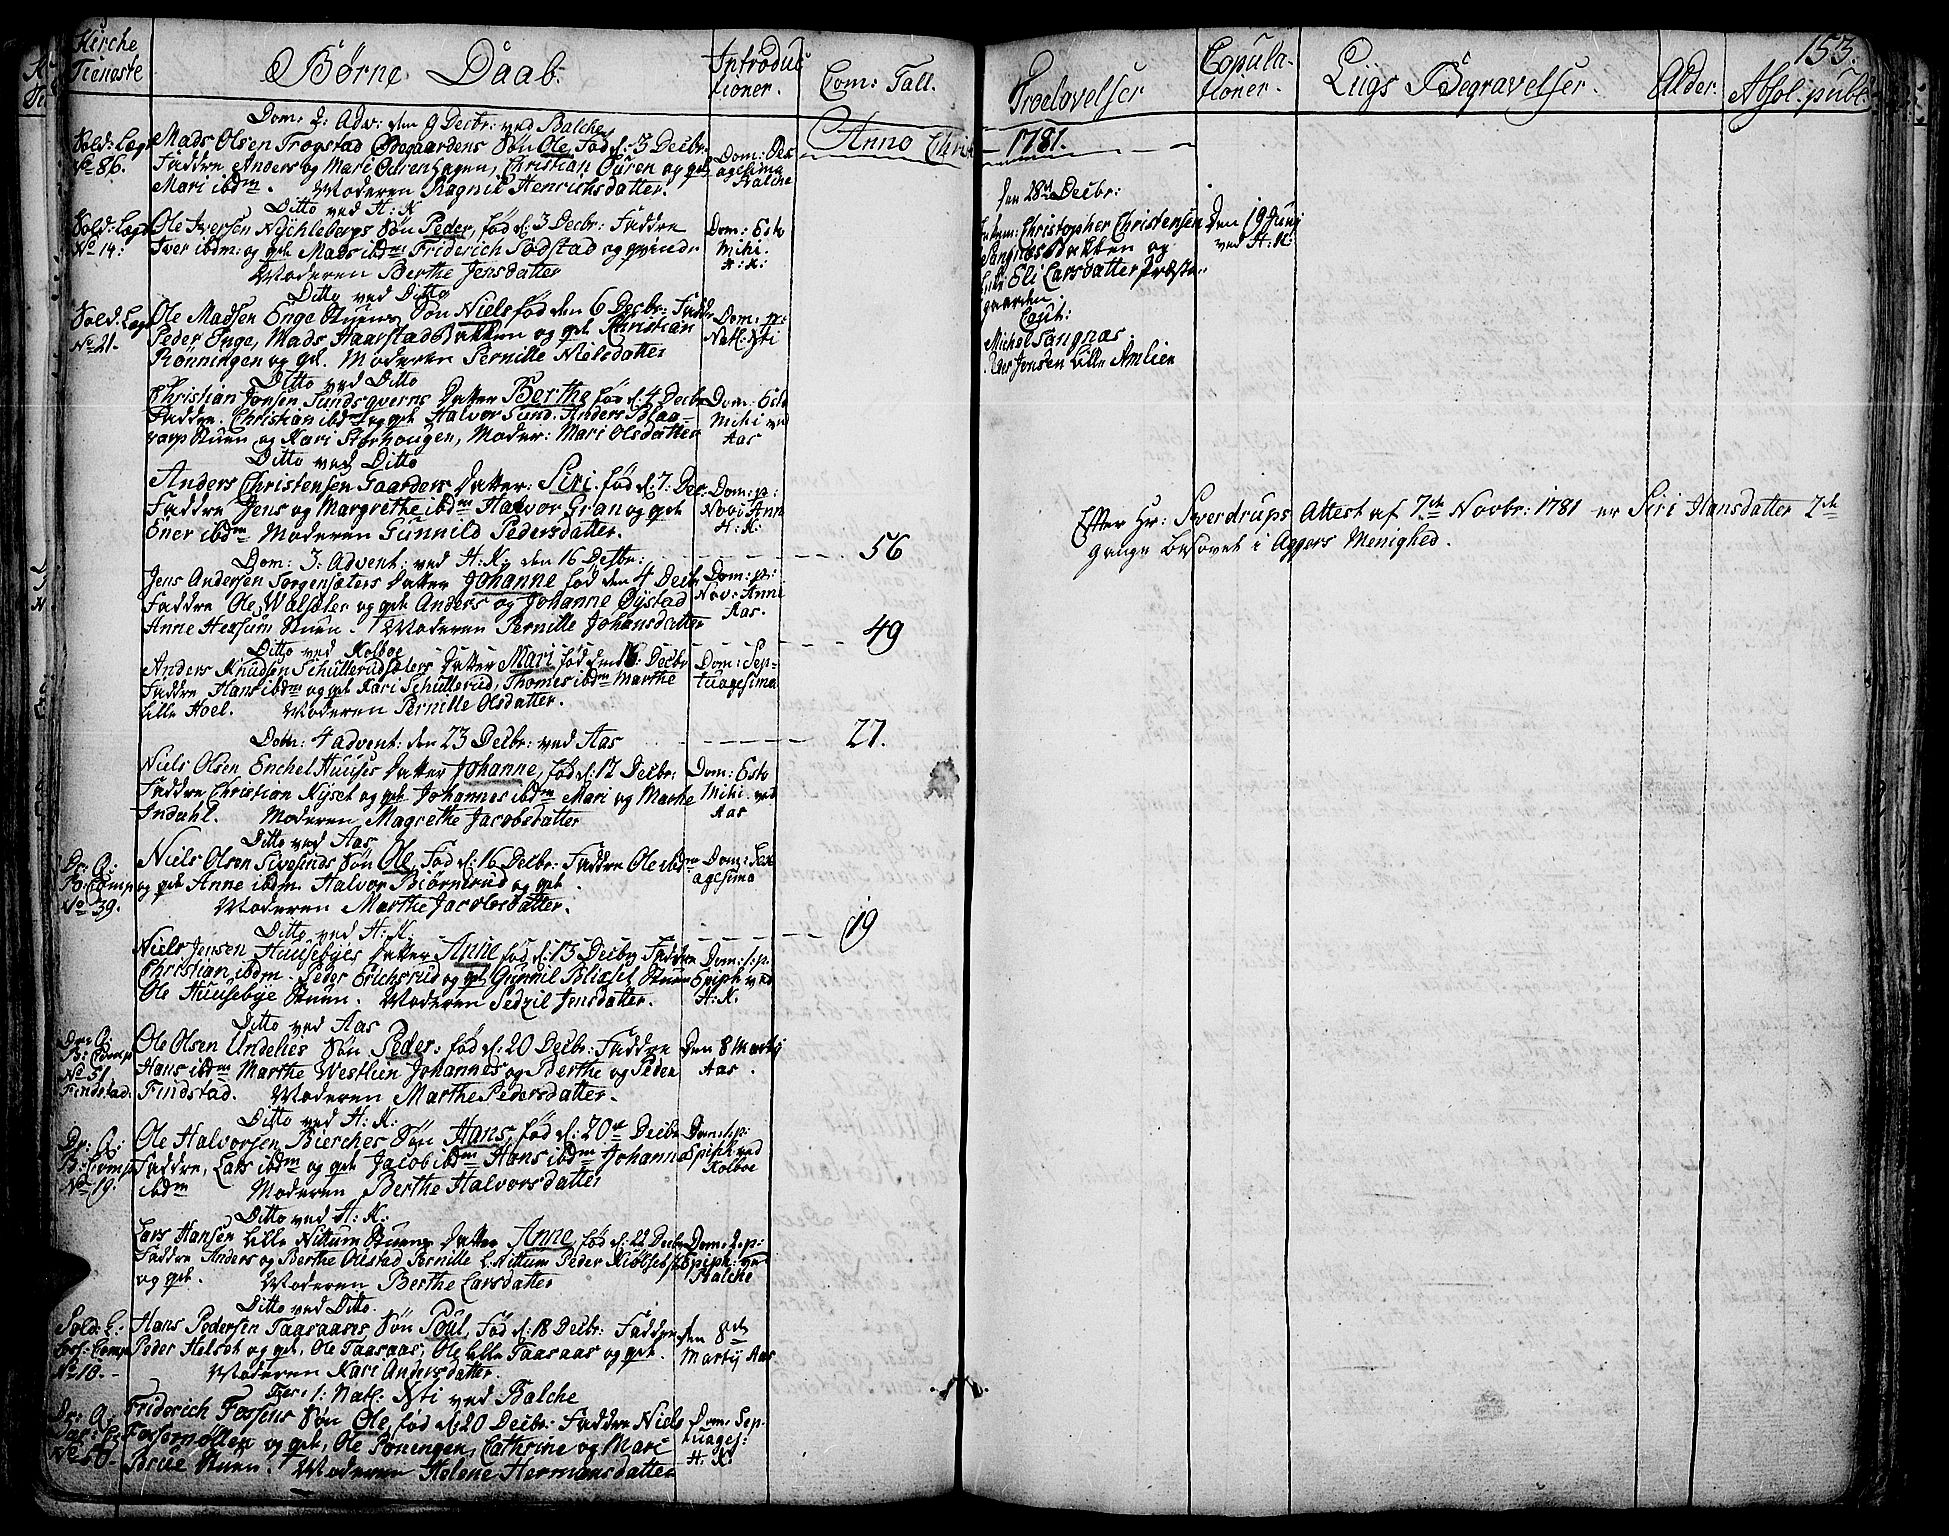 Kirche
Tieneste
Børne Daab.
Introduc
tioner.
Com: Tall.
Troelovelser
Copula-
tioner.
Liigs Begravelser.
Alder.
Absol. publ.
153.
Anno Christi 1781.
Dom: 2: Adv: den 9 Decbr: ved Balche
Sold: Lægd
No 86.
Mads Olsen Trogstad Ødegaardens Søn Ole, Fød d: 3 Decbr.
Faddre Anders og Mari Ourenhagen, Christian Ouren og qvi
Mari ibdm. Moderen Ragnil Henrichsdatter.
Dom: Sex
agesima
Balche
Ditto ved H: K
Sold: Lægd
No 14:
Ole Iversen Nychlebyes Søn Peder, fød d: 3 Decbr: Faddre
Iver ibdm: og qvi Mads ibdm Friderich Sodstad og qvinde
Moderen Berthe Jensdatter
Dom: Esto
Mihi.
H: K:
Ditto ved Ditto
Sold: Lægd
No 21.
Ole Madsen Enge Stuens Søn Niels fød den 6 Decbr: Faddr
Peder Enge, Mads Haarstad Bakken og qvi Christian
Rønningen og qvi. Moderen Pernille Nielsdatter
Dom: p:
Natl: Xsti
Ditto ved Ditto
Christian Jonsen Sundsqverns Datter Berthe fød d: 4 Decbr
Faddre. Christian ibdm og qvi Halvor Sund. Anders Blaa-
varp Stuen og Kari Storhougen, Moder: Mari Olsdatter
Dom: Esto
Mihi ved
Aas
Ditto ved Ditto
Anders Christensen Gaarders Datter: Siri. fød d: 7: Dec
Faddre Jens og Margrethe ibdm Halvor Gran og qvi
Ener ibdm Moderen Gunnild Pedersdatter.
Dom: p:
Novi Ann
H: K:
Dom: 3: Advent: ved H: K: den 16 Decbr: 56
Jens Andersen Sorgensæters Datter Johanne fød den 4 Decbr
Faddre Ole Walsæter og qvi Anders og Johanne Øystad
Anne Hexum Stuen. Moderen Pernille Johansdatter
Dom: p:
Nov: Anni
Aas.
Ditto ved Kolboe 49
Anders Knudsen Schullerudsæters Datter Mari fød den 6: Decbr
Faddre Hans ibdm og qvi Kari Schullerud, Thomes ibdm Marthe
Lille Hoel. Moderen Pernille Olsdatter.
Dom: Sep-
tuagesima
Dom: 4 Advent: den 23 Decbr: ved Aas 27.
Niels Olsen Enchel Huuses Datter Johanne, fød d: 12 Decbr:
Faddre Christian Nyset og qvi Johannes ibdm Mari og Marthe
Indahl. Moderen Magrethe Jacobsdatter
Dom: Esto
Mihi ved
Aas
Ditto ved Aas
Dr: Q:
B: Comp
No 39.
Niels Olsen Sivesinds Søn Ole, Fød d: 16 Decbr: Faddre Ole ibdm
og qvi Anne ibdm. Halvor Biørnerud og qvi
Moderen Marthe Jacobsdatter.
Dom: Sex
agesima
Ditto ved H: K. 19
Niels Jensen Huusebyes Datter Anne fød d: 13 Decbr Faddre
Christian ibdm. Peder Erichsrud og qvi Gunnil Blixset Stuen
Ole Huusebye Stuen. Moderen Sedzil Jensdatter.
Dom: 1: p.
Epiph ved
H: K.
Ditto ved Aas
Dr: Q:
B: Comp
No 51
Findstad.
Ole Olsen Undelies Søn Peder: fød d: 20 Decbr: Faddre
Hans ibdm Marthe Westlien Johannes og Berthe og Peder
Findstad. Moderen Marthe Pedersdatter.
Den 8 Martij
Aas.
Ditto ved H: K:
Dr: Q:
B: Comp
No 19.
Ole Halvorsen Bierches Søn Hans, fød d: 20de Decbr
Faddre, Lars ibdm og qvi Jacob ibdm Hans ibdm Johanne
ibdm Moderen Berthe Halvorsdatter
Dom: 1 p:
Epiph ved
Kolboe
Ditto ved H: K:
Lars Hansen Lille Nittum Stuens Datter Anne, fød d: 22 Decbr
Faddre Anders og Berthe Olestad Pernille L: Nittum Peder Kiølset
og qvi. Moderen Berthe Larsdatter
Dom: 2 p:
Epiph: ved
Balche
Ditto ved Ditto.
Sold: L:
No 10.
Hans Pedersen Taasaases Søn Poul, Fød d: 18 Decbr: Faddre
Peder Helset og qvi, Ole Taasaas, Ole Lille Taasaas og qvi.
Moderen Kari Andersdatter.
den 8de
Martij Aas
Fer: 1: Natl. Xsti ved Balche
Dr: Q:
No 50.
Friderich Fossens Søn Ole, fød d: 20 Decbr: Faddre Niels
Fossemøllen og qvi, Ole Roningen, Cathrine og Mari
Brue Stuen. Moderen Helene Hermansdatter
Dom: Sep-
tuages:
H: K:
den 28de Decbr:
Christopher Christensen
Sangnæsbakken og
Eli Larsdatter Præste-
gaarden.
Caut:
Michel Sangnæs
Peder Jonsen Lille Amlien
Den 19 Junij
ved H: K:
Efter Hr: Sverdrups Attest af 7de Novbr: 1781 er Siri Hansdatter 2de
gange besovet i Aggers Menighed.